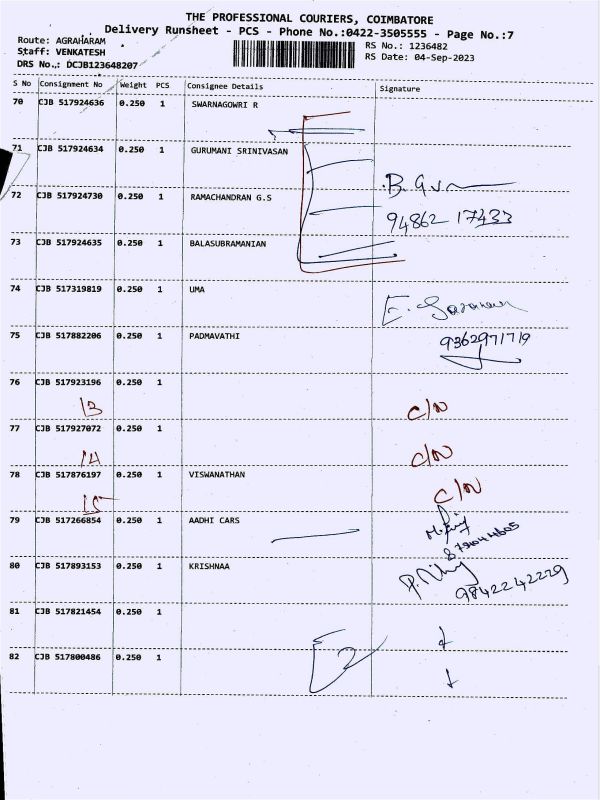 THE PROFESSIONAL COURIERS, COIMBATORE
Delivery Runsheet - PCS - Phone No.:0422-3505555 - Page No.:7
Route: AGRAHARAM
RS No.: 1236482
Staff: VENKATESH
RS Date: 04-Sep-2023
DRS No.: DCJB123648207
S No Consignment No Weight PCS Consignee Details Signature
70 CJB 517924636 0.250 1 SWARNAGOWRI R
71 CJB 517924634 0.250 1 GURUMANI SRINIVASAN
72 CJB 517924730 0.250 1 RAMACHANDRAN G.S
94862 17433
73 CJB 517924635 0.250 1 BALASUBRAMANIAN
74 CJB 517319819 0.250 1 UMA
75 CJB 517882206 0.250 1 PADMAVATHI
9362971719
76 CJB 517923196 0.250 1
13 C/N
77 CJB 517927072 0.250 1
14 C/N
78 CJB 517876197 0.250 1 VISWANATHAN
15 C/N
79 CJB 517266854 0.250 1 AADHI CARS
80 CJB 517893153 0.250 1 KRISHNAA
9842242229
81 CJB 517821454 0.250 1
82 CJB 517800486 0.250 1
2